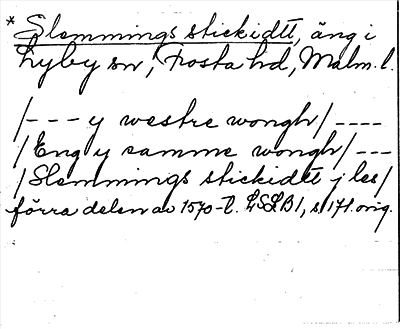 * Slemmings stickidtt, äng i
Lyby sn, Frosta hd, Malm. l.
/--- y westre wongh/ ----
/Eng y samme wongh/ ---
/Slemmings stickidtt j les/
förra delen av 1570-t. LSLB 1, s. 171. orig.